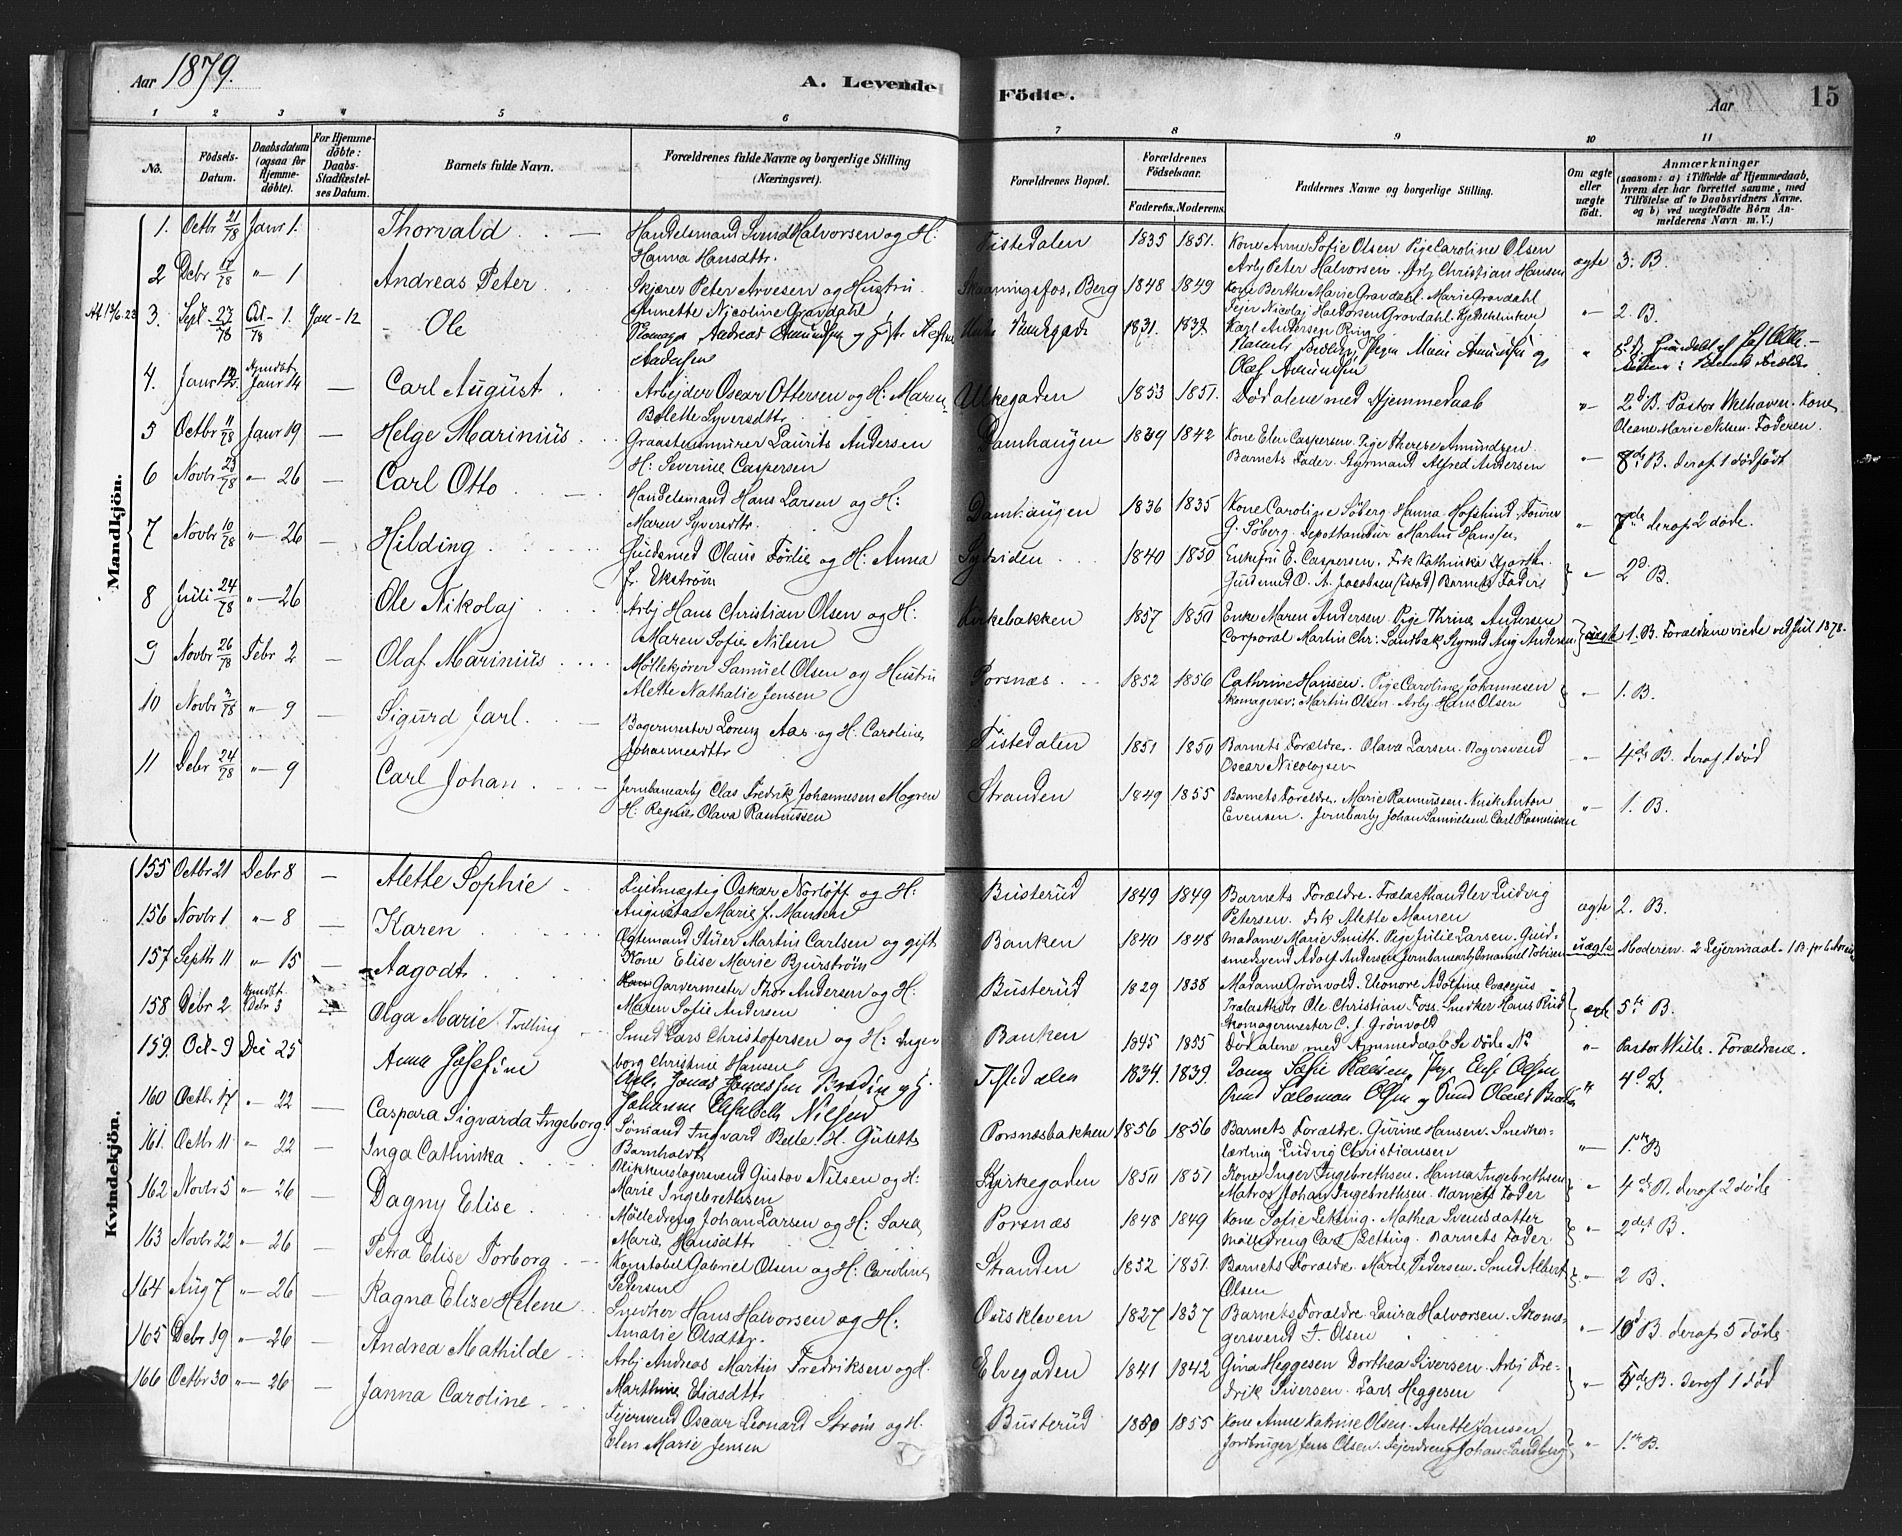 Aar 1879.
A. Levende Födte.
Aar
15
1 2 3 4 5 6 7 8 9 10 11
No.
Födsels-Datum.
Daabsdatum (ogsaa for Hjemme-döbte).
For Hjemme-döbte: Daabs-Stadfæstel-ses Datum.
Barnets fulde Navn.
Forældrenes fulde Navne og borgerlige Stilling (Næringsvei).
Forældrenes Bopæl.
Forældrenes Födselsaar.
Faderens. Moderens.
Faddernes Navne og borgerlige Stilling.
Om ægte eller uægte födt.
Anmærkninger
(saasom: a) i Tilfælde af Hjemmedaab, hvem der har forrettet samme, med Tilföielse af to Daabsvidners Navne. og b) ved uægtefödte Börn An-melderens Navn m. V.)
Mandkjön.
1. Octbr 21/78 Janr 1. Thorvald. — Handelsmand Svend Halvorsen og H: Tistedalen 1835 1851. Kone Anne Sofie Olsen Pige Caroline Olsen
Hanna Hansdttr. Arbj Peter Halvorsen. Arbj Christian Hansen ægte 3. B.
2 Debr 17/78 " 1 Andreas Peter Skjærer Peter Arvesen og Hustru Skaaningsfos, Berg 1848 1849 Kone Berthe Marie Gravdahl. Marie Gravdahl
Annette Nicoline Gravdahl Nicolaj Halvorsen Gravdahl. " 2. B.
3. Sept 27/78 Oct/78 - 1. Jan - 12 Ole Andreas Amundsen og 1831. 1839. Karl Andersen Ring
Andersen Marie Amundsen og
Olaf Amundsen
4. Janr Janr 14 — Carl August Arbejder Oscar Ottersen og H: Maren 1853 1851. Död alene med Hjemmedaab " 2d B. Pastor Welhaven. Kone
Bolette Syversdttr. Oleane Marie Nilsen. Faderen.
5 Octbr 11/78 Janr 19 — Helge Marinius Graastensmurer Laurits Andersen Damhaugen 1839 1842 Kone Elen Caspersen. Pige Therese Amundsen
H: Severine Caspersen Barnets Fader. Styrmand Alfred Andersen " 8de B. deraf 1 dödfödt
6 Novbr 23/78 " 26 Carl Otto Handelsmand Hans Larsen og H: Damhaugen 1836 1835 Kone Caroline Söberg. Hanna
Maren Syversdttr. G. Söberg. Martin Hansen " 7de deraf 2 döde.
7 Novbr 10/78 " 26 — Hilding Guldsmed Olaus Förlie og H: Anna Sydsiden 1840 1850 Enkefru E. Caspersen. Frk Cathinka
Fr. Ekström Guldsmed O. A. Jacobsen Barnets Fader " 2d B.
8 Juli 24/78 " 26 — Ole Nikolaj Arbj Hans Christian Olsen og H: Kirkebakken 1857 1850 Enke Maren Andersen. Pige Thrine Andersen
Maren Sofie Nilsen Corporal Martin Chr: Sandbak Styrmd Aug Andersen uægte 1. B. Forældrene viede ved Juul 1878.
9 Novbr 26/78 Febr 2 — Olaf Marinius Möllekjörer Samuel Olsen og Hustru Porsnæs 1852 1856 Cathrine Hansen. Pige Caroline Johannesen
Alette Nathalie Jensen Skomagersv: Martin Olsen. Arbj Hans Olsen " 1. B.
10 Novbr 3/78 " 9 — Sigurd Jarl. Bagermester Lorenz Aas og H. Caroline Tistedalen 1851 1850 Barnets Forældre. Olava Larsen. Bagersvend
Johannesdttr Oscar Nicolajsen " 4de B. deraf 1 död
11 Debr 24/78 " 9 Carl Johan Jernbanearbj Clas Fredrik Johannesen Mogren Stranden 1849 1855 Barnets Forældre. Marie Rasmussen. Anton
H: Regine Olava Rasmussen Evensen. Jernbarbj Johan Samuelsen. Carl Rasmussen " 1. B.
Kvindekjön.
155 Octbr 21 Debr 8 — Alette Sophie Fuldmægtig Oskar Norlöff og H: Busterud 1849 1849 Barnets Forældre. Trælasthandler Ludvig
Augusta Marie f. Mansen Petersen. Frk Alette Mansen ægte 2. B.
156 Novbr 1 " 8 — Karen Ogtemand Stuer Martin Carlsen og gift Banken 1840 1848 Madame Marie Smitt. Pige Julie Larsen. Guld-
Kone Elise Marie Bjurström smedsvend Adolf Andersen Jernbanearbj Emanuel Tobisen uægte Moderen. 2 Leiermaal.
157 Septb 11 " 15 — Aagodt Garvermester Thor Andersen og H: Busterud 1829 1838 Madame Grönvold. Eleonore Adolfine
Maren Sofie Andersen Trælasthdlr Ole Christian Foss. Snedker Hans Rud
Skomagermester C. J. Grönvold ægte 5te B.
158 Debr 2 Debr 3 Olga Marie Tvilling Smed Lars Christofersen og H: Inge- Banken 1845 1855 Död alene med Hjemmedaab Se Döde No " Pastor Wille. Forældrene.
borg Christine Hansen
159 Oct 9 Dec 25 Anna Josefine Arb. Jonas Bredin og Tistedalen 1834. 1839. Sofie Pige Else Olsen
Johanne Elisabeth Nilsen Salomon Olsen og " 4d B.
160 Octbr 17 " 22 — Caspara Sigvarda Ingeborg Sömand Ingvard Belle. H. Guletta Porsnæsbakken 1856 1856 Barnets Forældre. Gurine Hansen. Snedker-
Barnholdt lærling Ludvig Christiansen " 1ste B
161. Octbr 11 " 22 — Inga Cathinka Blikkenslagersvend Gustav Nilsen og H: Kirkegaden 1850 1851 Kone Inger Ingebrethsen. Hanna Ingebrethsen
Marie Ingebrethsen Matros Johan Ingebrethsen. Barnets Fader " 4de B. deraf 2 döde
162 Novbr 5 " 26 — Dagny Elise Mölledreng Johan Larsen og H: Sara Porsnæs 1848 1849 Kone Sofie Letting. Mathea Svensdatter
Marie Hansdttr Mölledreng Carl Letting. Barnets Fader " 2det B.
163 Novbr 22 " 26 — Petra Elise Torborg Konstabel Gabriel Olsen og H: Caroline Stranden 1852 1851. Barnets Forældre. Marie Pedersen. Smed Albert
Pedersen Olsen " 2 B.
164 Aug 7 " 26 — Ragna Elise Helene Snedker Hans Halvorsen og H: Ouskleven 1827 1837 Barnets Forældre. Laura Halvorsen. Skoma-
Amalie Olsdttr. gersvend F. Olsen " 10d B. deraf 5 Döde
165 Debr 19 " 26 — Andrea Mathilde Arbj Andreas Martin Fredriksen og H. Elvegaden 1841 1842 Gina Heggesen Dorthea Siversen. Arbj Fre-
Marthine Eliasdttr drik Siversen. Lars Heggesen " 5de B. deraf 1 död
166 Octbr 30 " 26 — Janna Caroline Fejersvend Oscar Leonard Ström og H. Busterud 1850 1855 Kone Anne Katrine Olsen. Anette Jansen
Elen Marie Jensen Jordbruger Jens Olsen. Fejerdreng Johan Sandberg " 1ste B.